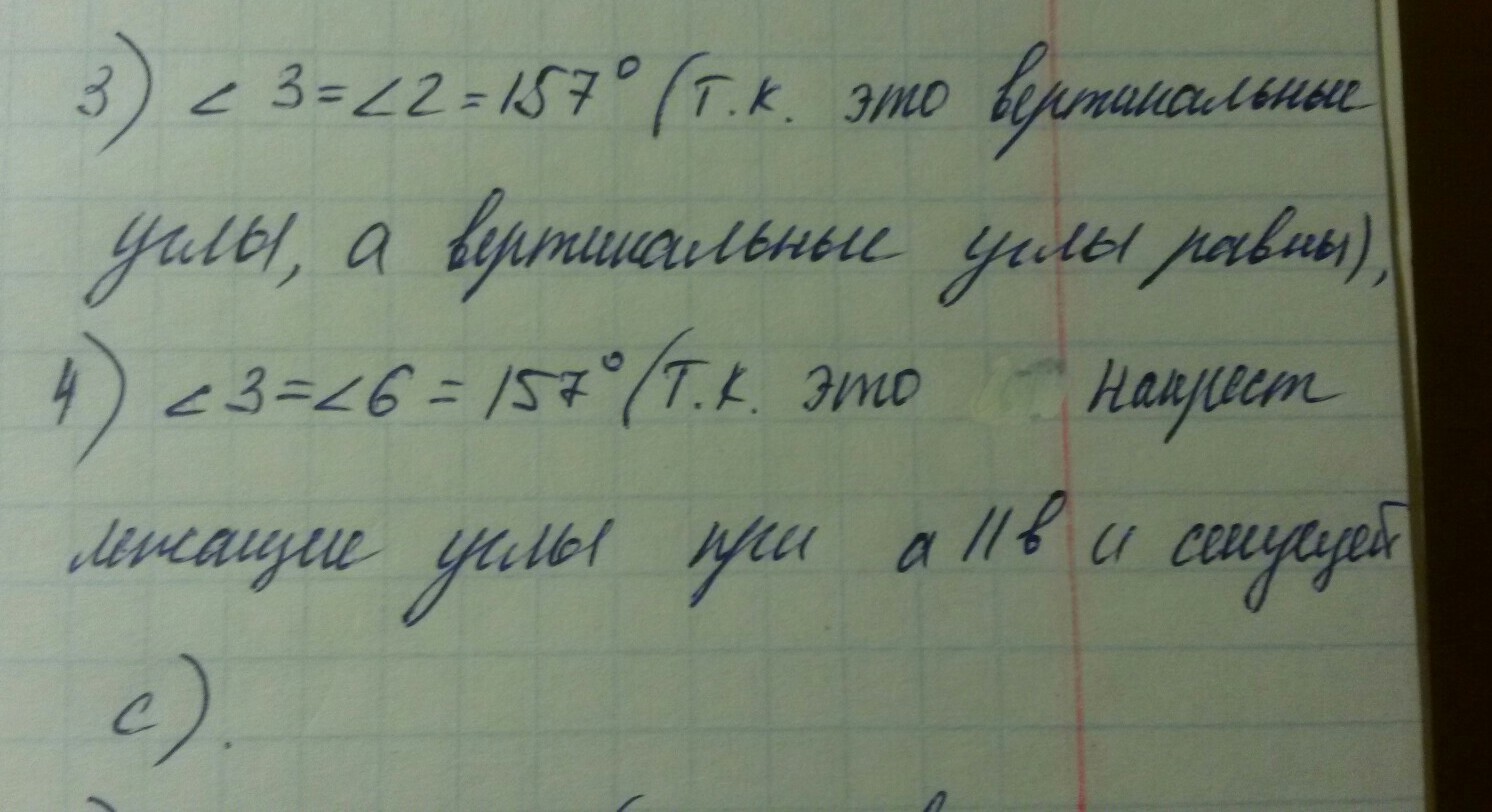 3) ∠3=∠2=157° (т.к. это вертикальные
углы, а вертикальные углы равны),
4) ∠3=∠6=157° (т.к. это накрест
лежащие углы при a||в и секущей
с).